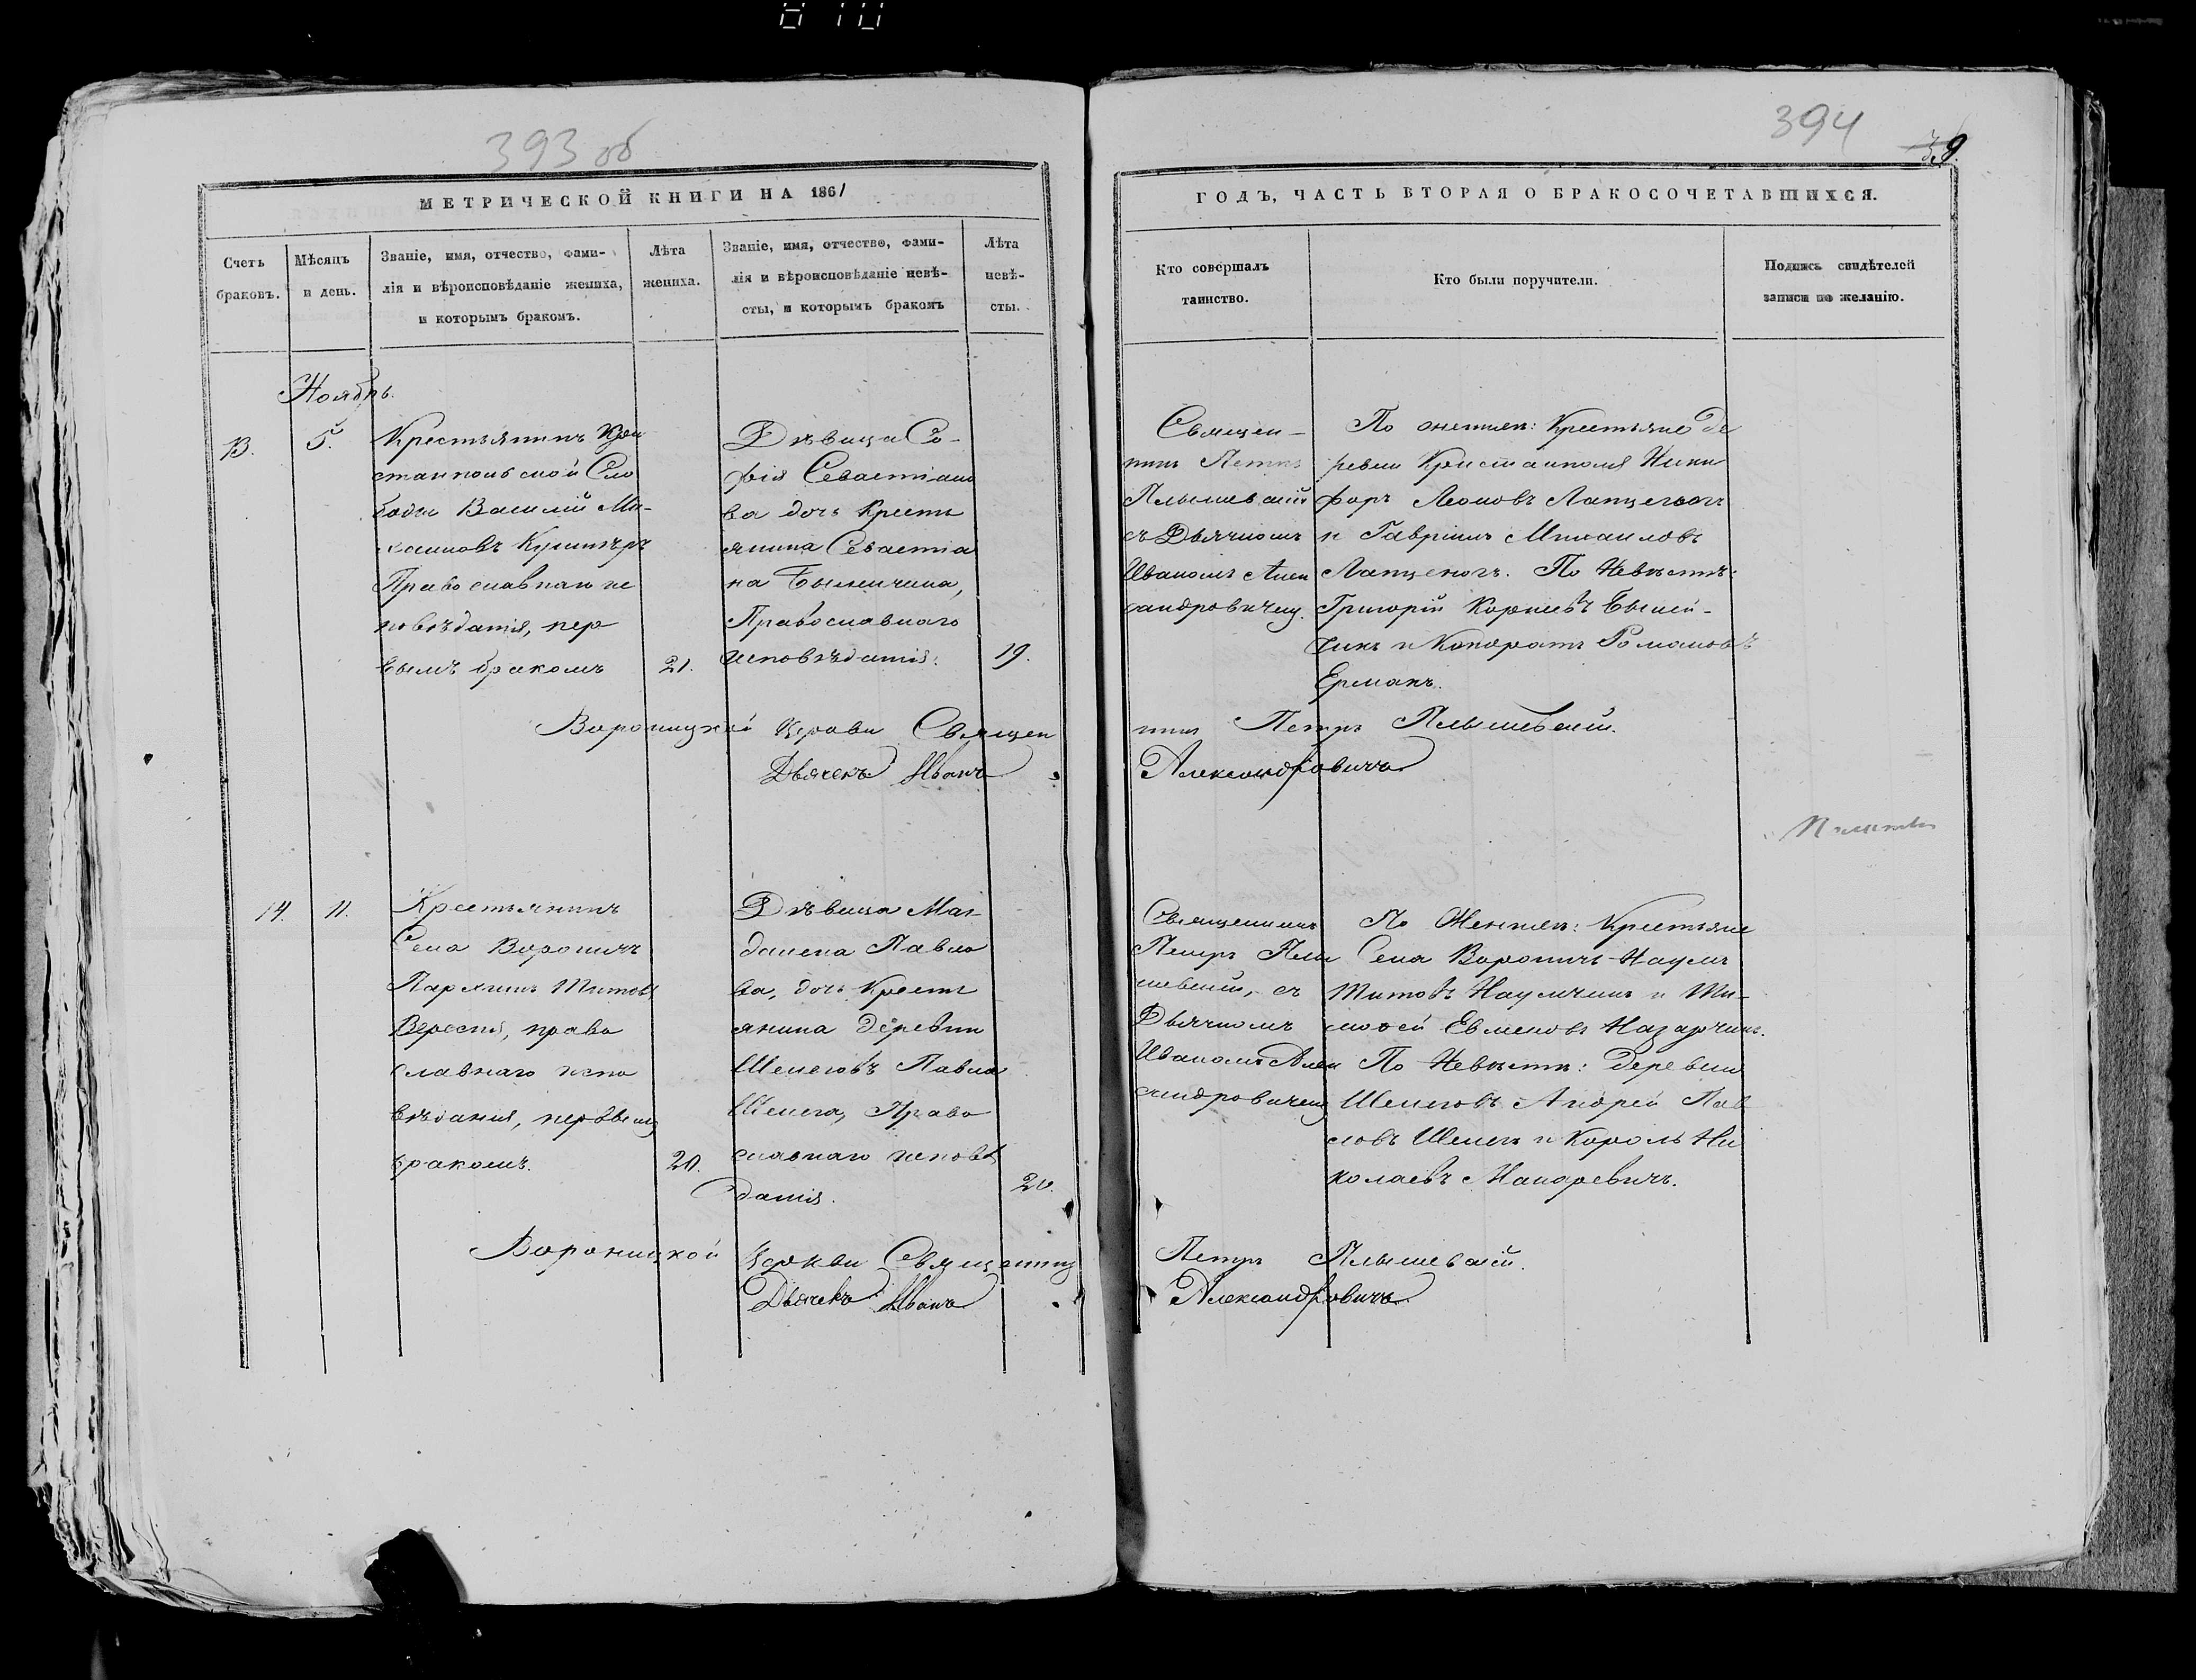 810
393 об
МЕТРИЧЕСКОЙ КНИГИ НА 1861
Счетъ
браковъ.
Мѣсяцъ
и день.
Званіе, имя, отчество, фами-
лія и вѣроисповѣданіе жениха,
и которымъ бракомъ.
Лѣта
жениха.
Званіе, имя, отчество, фами-
лія и вѣроисповѣданіе невѣ-
сты, и которымъ бракомъ
Лѣта
невѣ-
сты.
Ноябрь.
13.
5.
Крестьянинъ Кри
станпольской Сло
боды Василій Ми-
хаиловъ
Православнаго ис
повѣданія, пер
вымъ бракомъ
21.
Дѣвица Со-
фія Севастіано
ва дочь Крестъ
янина Севастіа
на
Православнаго
исповѣданія.
19.
Вороницкой Церкви Священ
Дьячекъ Иванъ
14.
11.
Крестьянинъ
Села Вороничъ
Пархимъ Титовъ
право
славнаго испо
вѣданія, первымъ
бракомъ.
20.
Дѣвица Маг-
далена Павло
ва, дочь Крестъ
янина деревни
Шелеговъ Павла
Шелега, Право
славнаго исповѣ
данія.
20.
Вороницкой Церкви Священникъ
Дьячекъ Иванъ
394
39.
ГОДЪ, ЧАСТЬ ВТОРАЯ О БРАКОСОЧЕТАВШИХСЯ.
Кто совершалъ
таинство.
Кто были поручители.
Подпись свидѣтелей
записи по желанію.
Священ-
никъ Петръ
Плышевскій
съ Дьячкомъ
Иваномъ Алек
сандровичемъ.
По женихѣ: Крестьяне де
ревни Кристанполя Ники
форъ Леоновъ Лапценогъ
и Гавріилъ Михаиловъ
Лапценогъ. По Невѣстѣ:
Григорій Корнѣевъ
чикъ и Кондратъ Романовъ
Ермакъ.
никъ Петръ Плышевскій.
Александровичъ
Священникъ
Петръ Плы
шевскій, съ
Дьячкомъ
Иваномъ Алек
сандровичемъ
По Женихѣ: Крестьяне
Села Вороничъ Наумъ
Титовъ Наумчикъ и Ти-
мофей Евменовъ Назарчикъ.
По Невѣстѣ: Деревни
Шелеговъ Андрей Пав
ловъ Шелегъ и Король Ни
колаевъ Макаревичъ.
Петръ Плышевскій.
Александровичъ